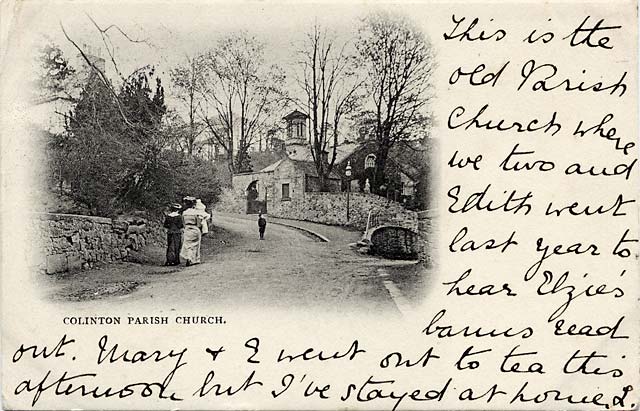 This is the
old Parish
Church where
we two and
Edith went
last year to
hear Elzie's
banns read
COLINTON PARISH CHURCH.
out. Mary & E went out to tea this
afternoon but I've stayed at home. L.